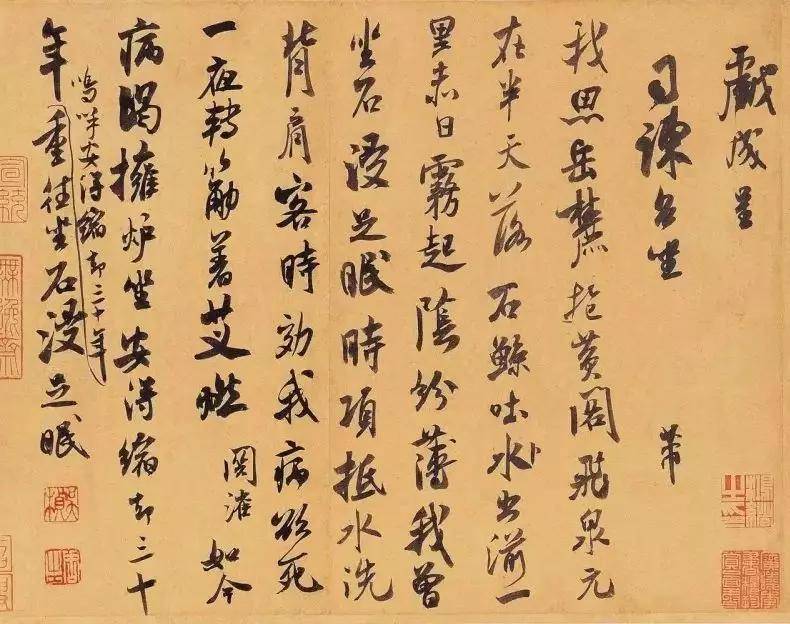 戲成呈
司諫台坐
芾
我思岳麓抱黃閣飛泉元
在半天落石鯨吐水出湔一
里赤日霧起陰紛薄我曾
坐石浸足眠時項抵水洗
背肩客時効我病欲死
一夜轉筋著艾燃 関灌 如今
病渴擁爐坐安得縮却三十
年重往坐石浸足眠
嗚呼安得縮却三十年